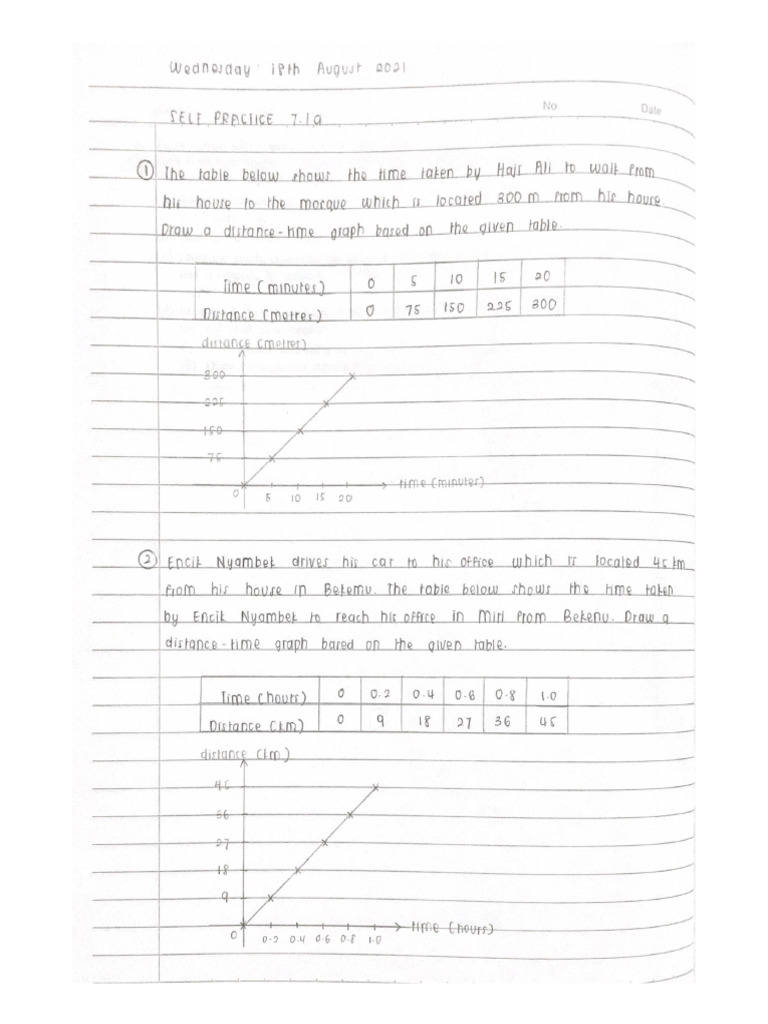 Wednesday 18th August 2021
No.
Date
SELF PRACTICE 7.1a
① The table below shows the time taken by Haji Ali to walk from
his house to the mosque which is located 300 m from his house.
Draw a distance-time graph based on the given table.
Time (minutes) 0 5 10 15 20
Distance (metres) 0 75 150 225 300
distance (metres)
300
225
150
75
0 5 10 15 20 time (minutes)
② Encik Nyambek drives his car to his office which is located 45 km
from his house in Bekemu. The table below shows the time taken
by Encik Nyambek to reach his office in Miri from Bekenu. Draw a
distance-time graph based on the given table.
Time (hours) 0 0.2 0.4 0.6 0.8 1.0
Distance (km) 0 9 18 27 36 45
distance (km)
45
36
27
18
9
0 0.2 0.4 0.6 0.8 1.0 time (hours)